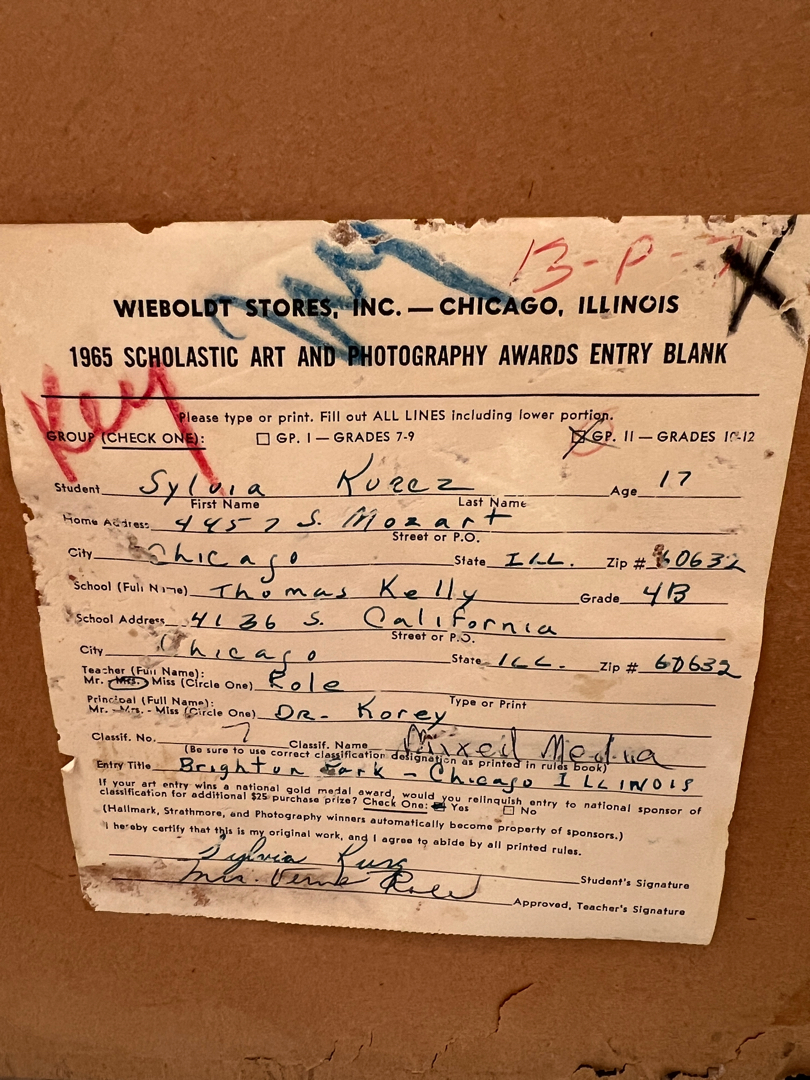 13-P-7
WIEBOLDT STORES, INC. — CHICAGO, ILLINOIS
1965 SCHOLASTIC ART AND PHOTOGRAPHY AWARDS ENTRY BLANK
Key
Please type or print. Fill out ALL LINES including lower portion.
GROUP (CHECK ONE): GP. I — GRADES 7-9 GP. II — GRADES 10-12
Student Sylvia Kurcz Age 17
First Name Last Name
Home Address 4457 S. Mozart
Street or P.O.
City Chicago State ILL. Zip # 60632
School (Full Name) Thomas Kelly Grade 4B
School Address 4136 S. California
Street or P.O.
City Chicago State ILL. Zip # 60632
Teacher (Full Name):
Mr. - Mrs. - Miss (Circle One) Role
Type or Print
Principal (Full Name):
Mr. - Mrs. - Miss (Circle One) DR. Korey
Classif. No. 7 Classif. Name Mixed Media
(Be sure to use correct classification designation as printed in rules book)
Entry Title Brighton Park - Chicago ILLINOIS
If your art entry wins a national gold medal award, would you relinquish entry to national sponsor of
classification for additional $25 purchase prize? Check One: Yes No
(Hallmark, Strathmore, and Photography winners automatically become property of sponsors.)
I hereby certify that this is my original work, and I agree to abide by all printed rules.
Sylvia Kurcz
Student's Signature
Mrs. Verne Role
Approved, Teacher's Signature